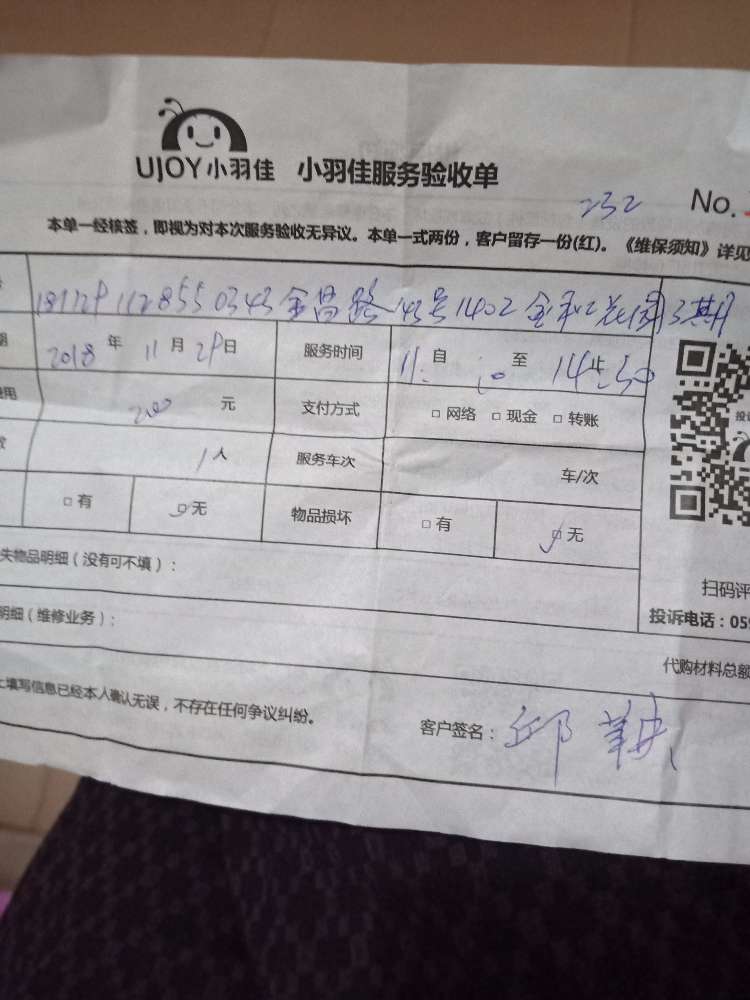 UJOY小羽佳 小羽佳服务验收单
232 No.
本单一经核签，即视为对本次服务验收无异议。本单一式两份，客户留存一份(红)。《维保须知》详见
金昌路143号1402 3期
期 2018年 11月29日 服务时间 11: 自 至 14止:30
费用 200 元 支付方式 □ 网络 □ 现金 □ 转账
数 1人 服务车次 车/次
□ 有 □ 无 物品损坏 □ 有 □ 无
失物品明细（没有可不填）：
扫码评
明细（维修业务）：
投诉电话：059
代购材料总额
上填写信息已经本人确认无误，不存在任何争议纠纷。
客户签名： 邱